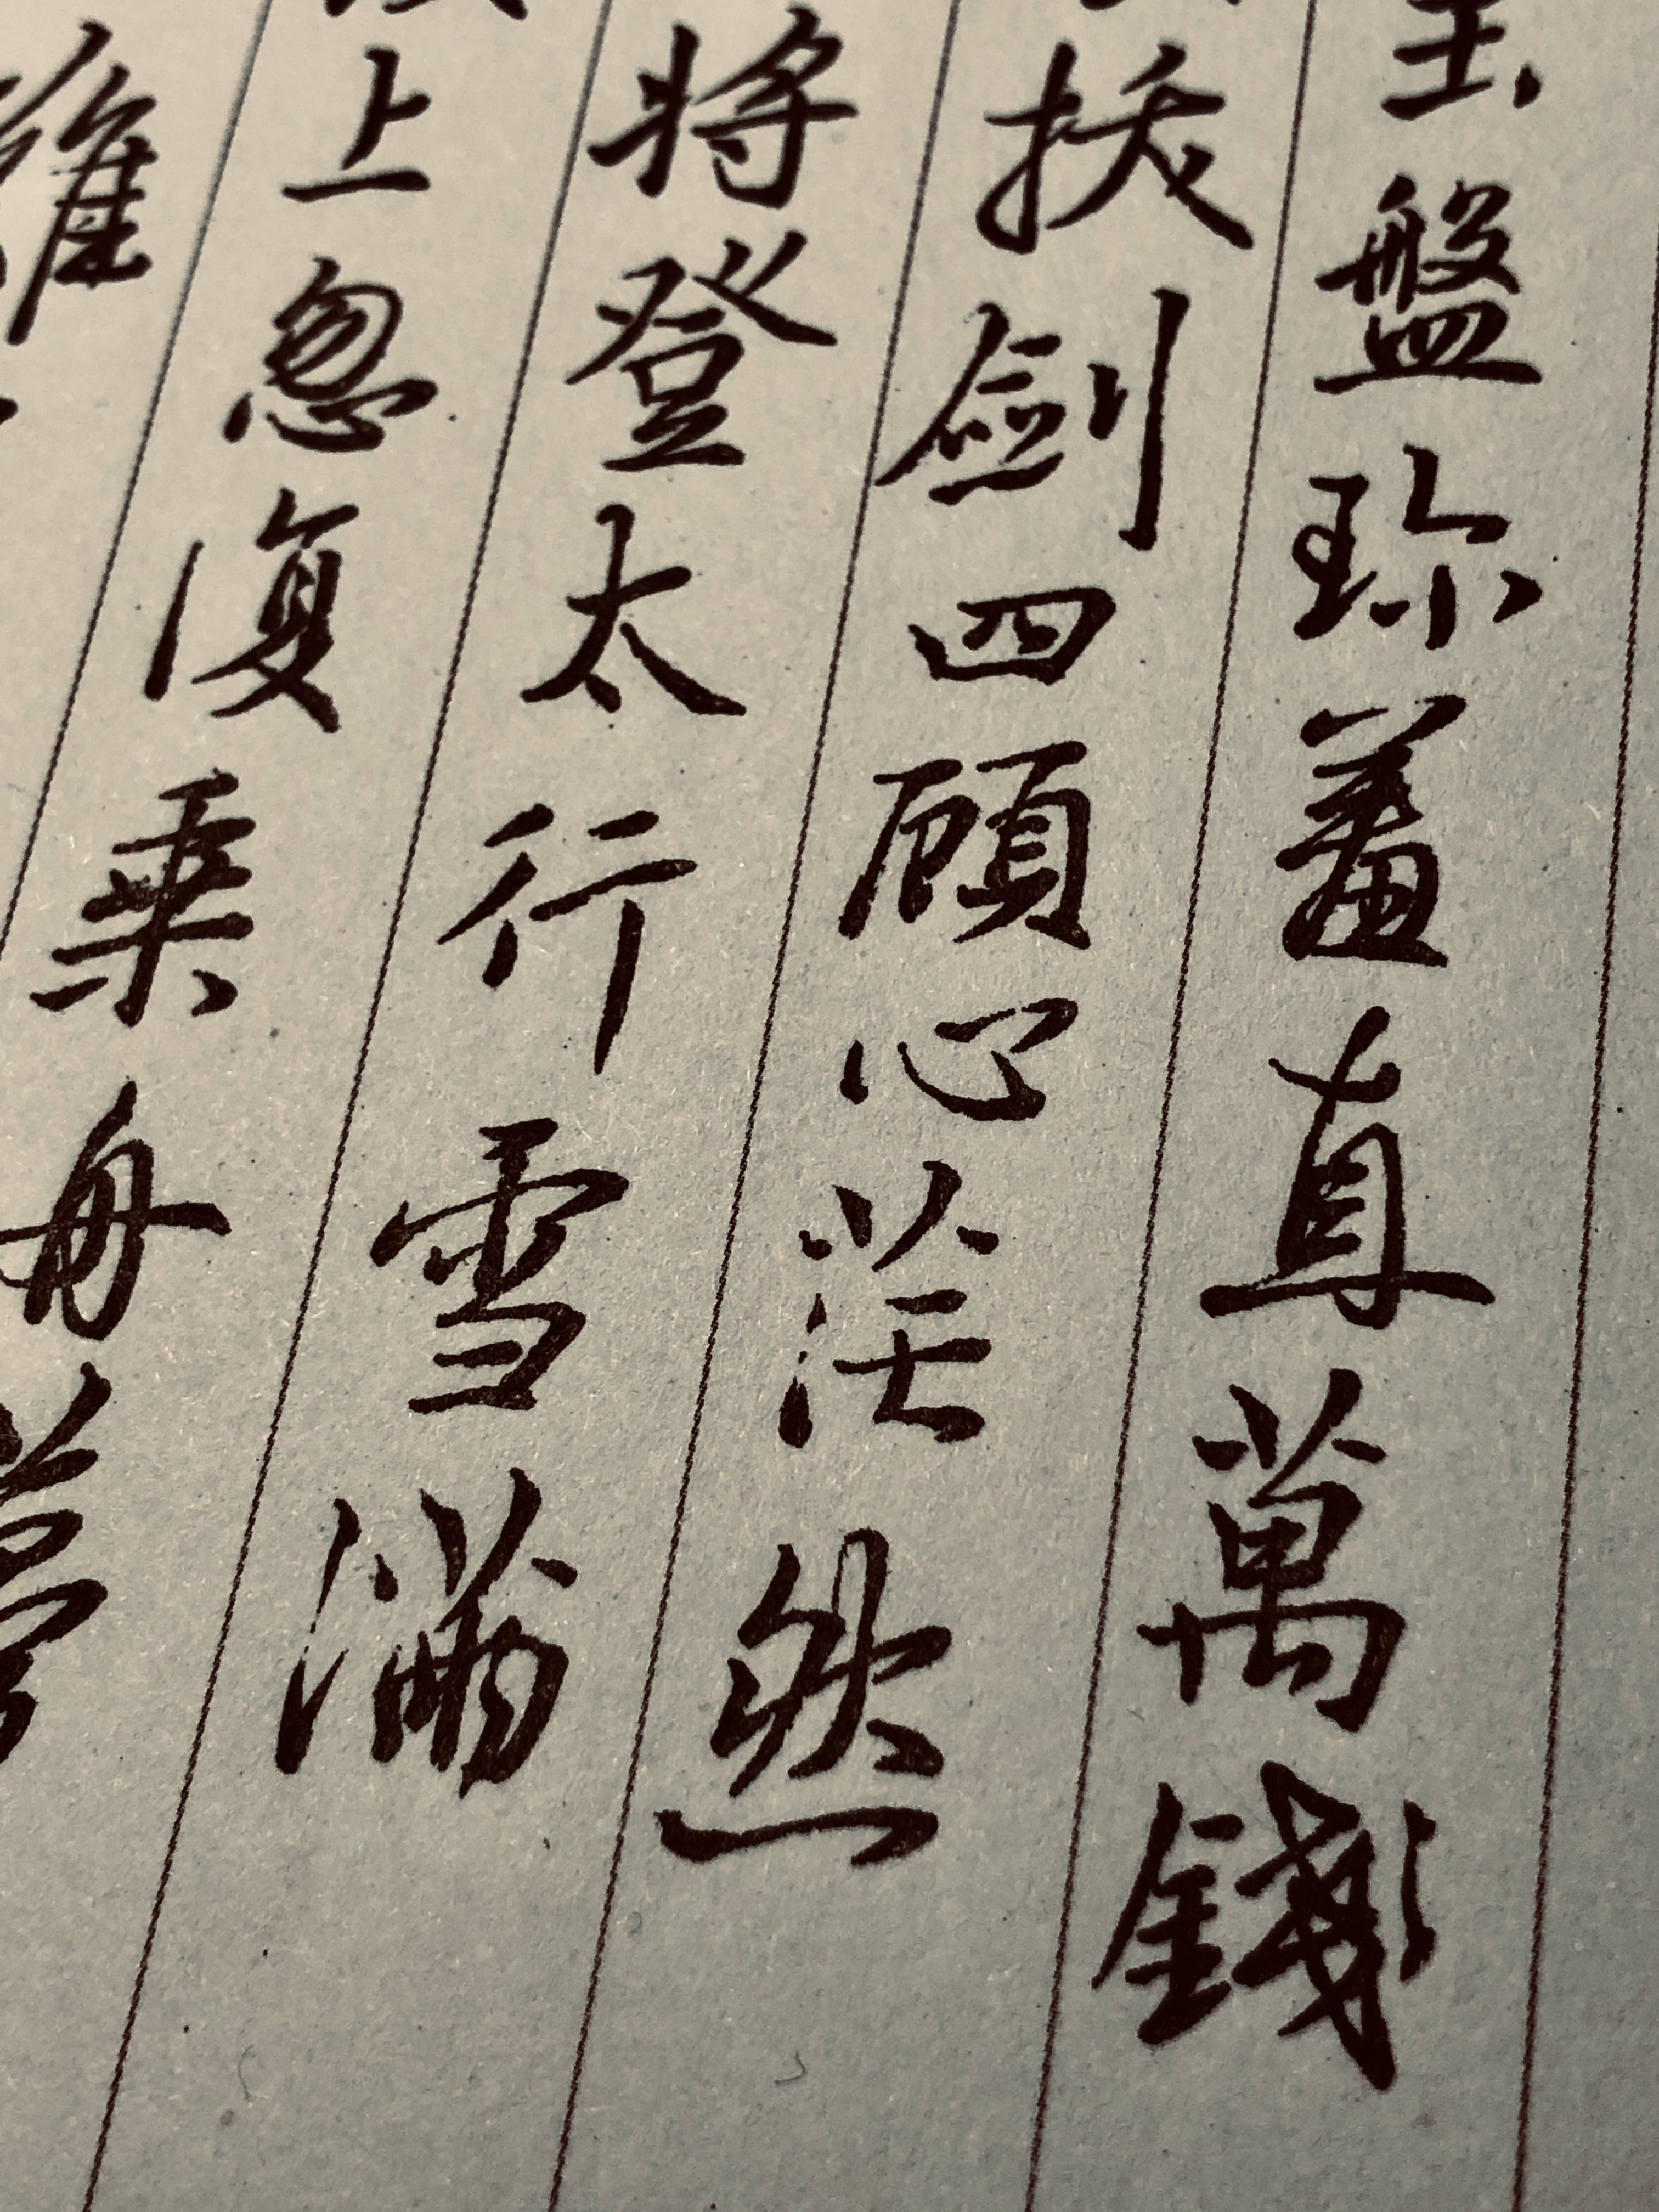 玉盤珎羞直萬錢
拔劍四顧心茫然
將登太行雪滿
上忽復乗舟